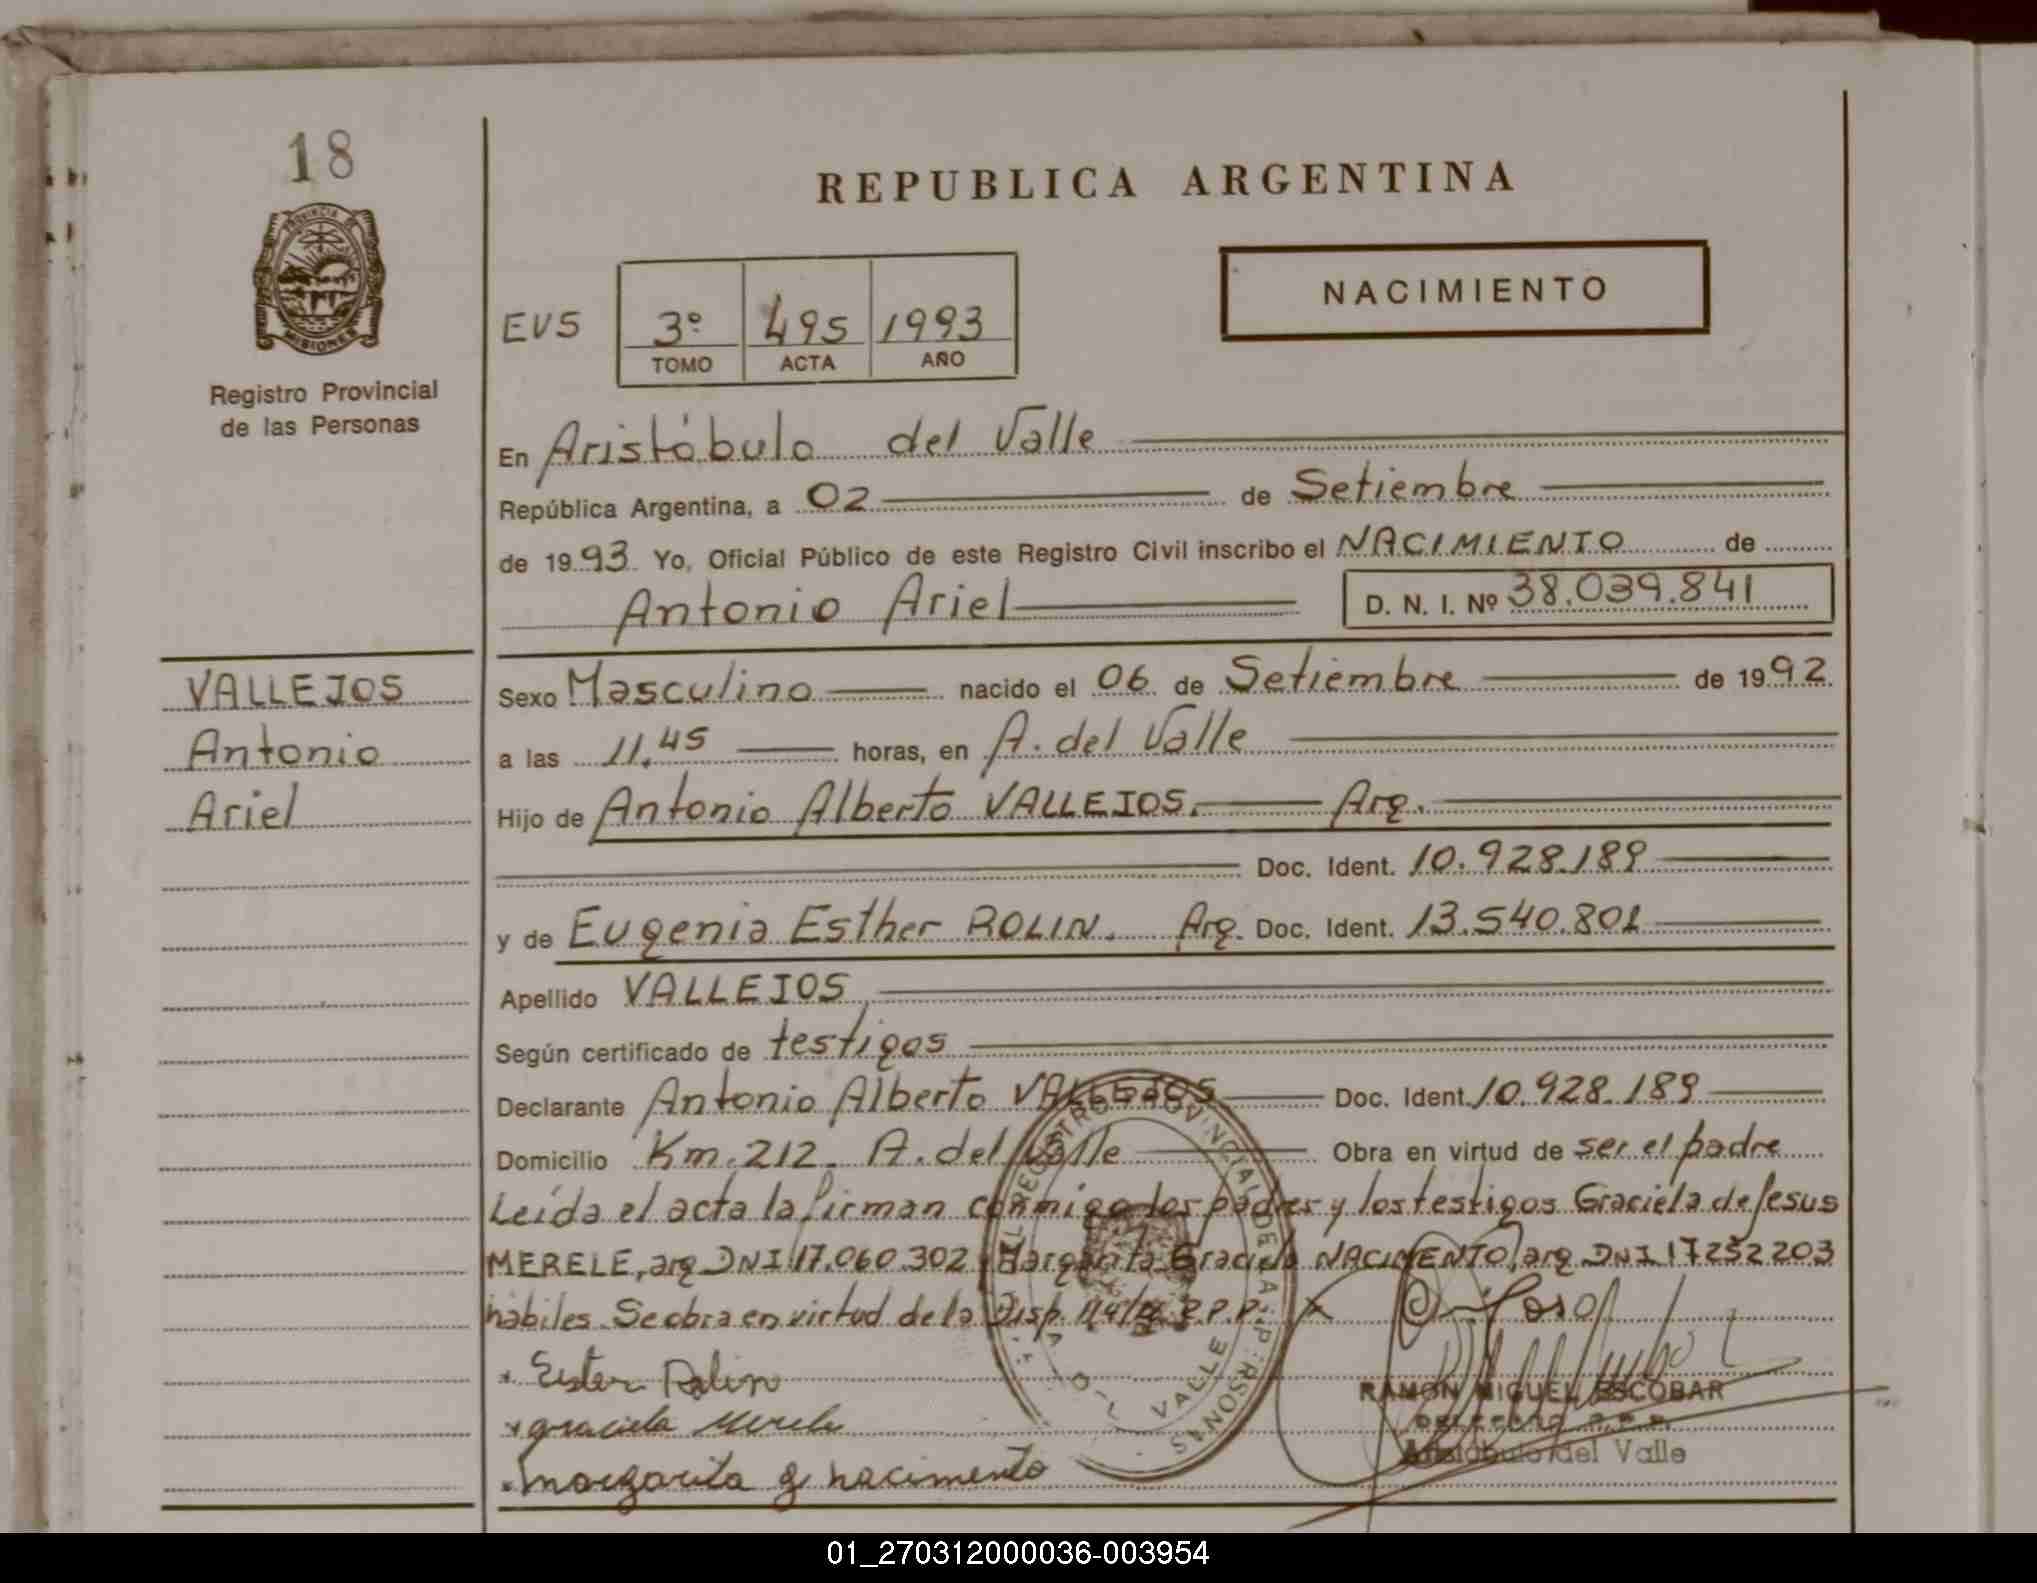 18
PROVINCIA DE
MISIONES
Registro Provincial
de las Personas
VALLEJOS
Antonio
Ariel
REPUBLICA ARGENTINA
NACIMIENTO
EVS 3º 495 1993
TOMO ACTA AÑO
En Aristóbulo del Valle
República Argentina, a 02 de Setiembre
de 1993 Yo, Oficial Público de este Registro Civil inscribo el NACIMIENTO de
Antonio Ariel D. N. I. Nº 38.039.841
Sexo Masculino nacido el 06 de Setiembre de 1992
a las 11.45 horas, en A. del Valle
Hijo de Antonio Alberto VALLEJOS. Arg.
Doc. Ident. 10.928.189
y de Eugenia Esther ROLIN. Arg. Doc. Ident. 13.540.801
Apellido VALLEJOS
Según certificado de testigos
Declarante Antonio Alberto VALLEJOS Doc. Ident. 10.928.189
Domicilio Km. 212. A. del Valle Obra en virtud de ser el padre
Leída el acta la firman conmigo los padres y los testigos Graciela de Jesus
MERELE, arg DNI 17.060.302 y Margarita Graciela NACIMENTO, arg DNI 17252203
hábiles. Se obra en virtud de la Disp.
Ester Rolin
graciela Merele
margarita g nacimento
RAMON MIGUEL ESCOBAR
Aristóbulo del Valle
01_270312000036-003954